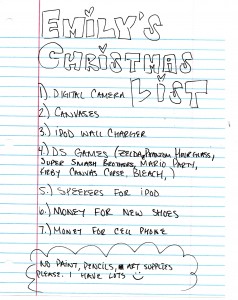 EMILY'S
CHRISTMAS
LIST
1.) DIGITAL CAMERA
2.) CANVASES
3.) IPOD WALL CHARGER
4.) DS GAMES (ZELDA, PHANTOM HOURGLASS,
SUPER SMASH BROTHERS, MARIO PARTY,
KIRBY CANVAS CURSE, BLEACH, )
5.) SPEEKERS FOR IPOD
6.) MONEY FOR NEW SHOES
7.) MONEY FOR CELL PHONE
NO PAINT, PENCILS, ART SUPPLIES
PLEASE. I HAVE LOTS